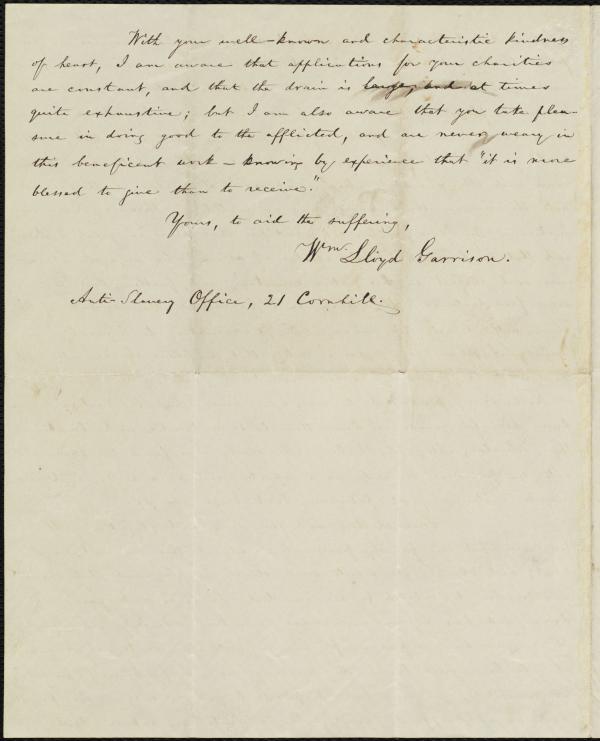 With your well-known and characteristic kindness
of heart, I am aware that applications for your charities
are constant, and that the drain is large, and at times
quite exhaustive; but I am also aware that you take plea-
sure in doing good to the afflicted, and are never weary in
this beneficent work - knowing by experience that "it is more
blessed to give than to receive."
Yours, to aid the suffering,
Wm. Lloyd Garrison.
Anti-Slavery Office, 21 Cornhill.